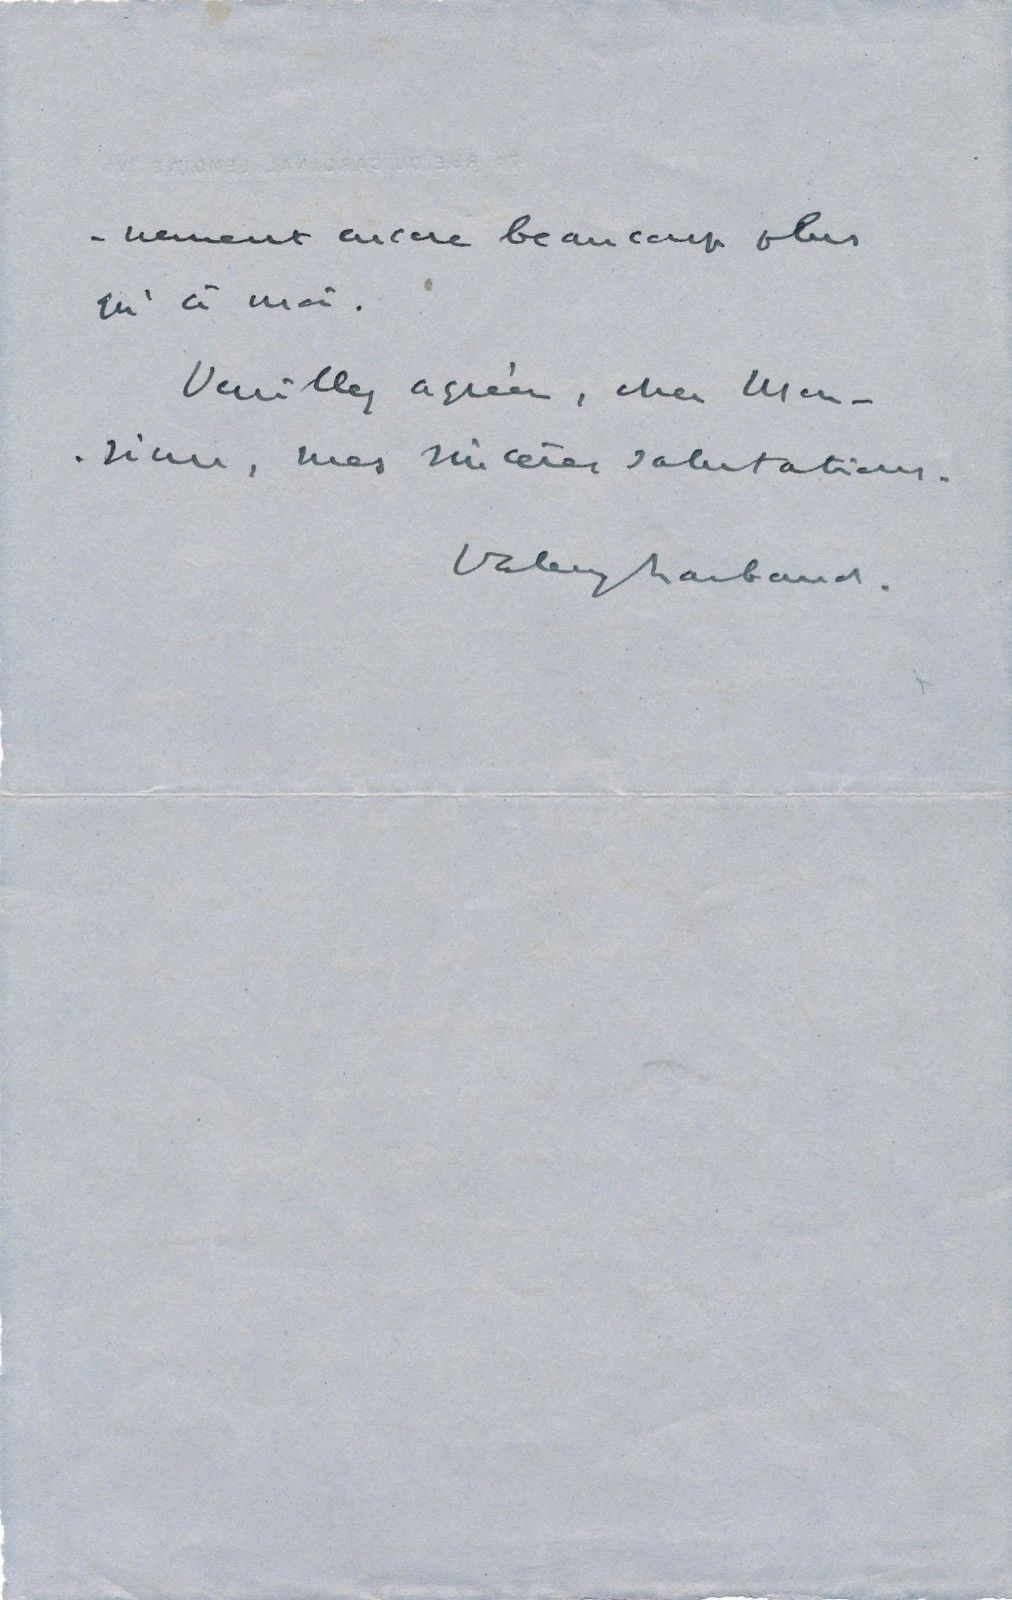 -nement encore beaucoup plus
qu'à moi.
Veuillez agréer, cher Mon-
-sieur, mes sincères salutations.
Valery Larbaud.